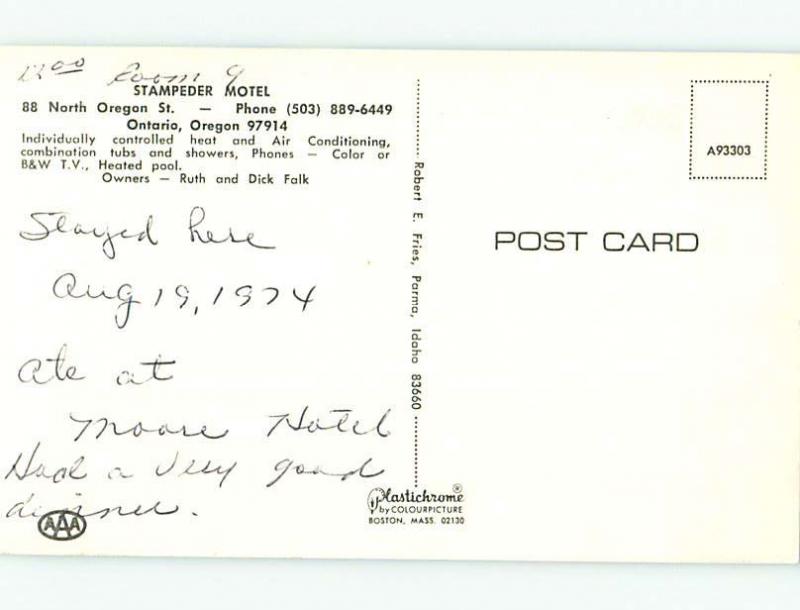 12⁰⁰ Room 9
STAMPEDER MOTEL
88 North Oregon St. — Phone (503) 889-6449
Ontario, Oregon 97914
Individually controlled heat and Air Conditioning,
combination tubs and showers, Phones — Color or
B&W T.V., Heated pool.
Owners — Ruth and Dick Falk
Stayed here
Aug 19, 1974
Ate at
Moore Hotel
Had a very good
dinner.
AAA
Robert E. Fries, Parma, Idaho 83660
Plastichrome®
by COLOURPICTURE
BOSTON, MASS. 02130
A93303
POST CARD